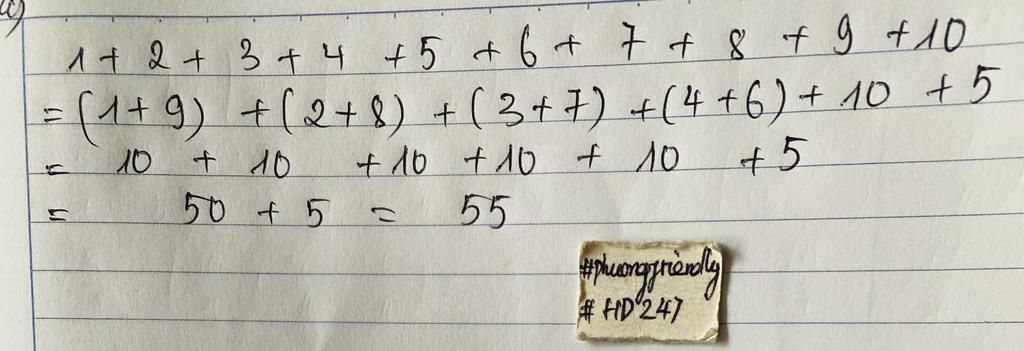 c)
1 + 2 + 3 + 4 + 5 + 6 + 7 + 8 + 9 + 10
= (1 + 9) + (2 + 8) + (3 + 7) + (4 + 6) + 10 + 5
= 10 + 10 + 10 + 10 + 10 + 5
= 50 + 5 = 55
#phuongfriendly
# HD247